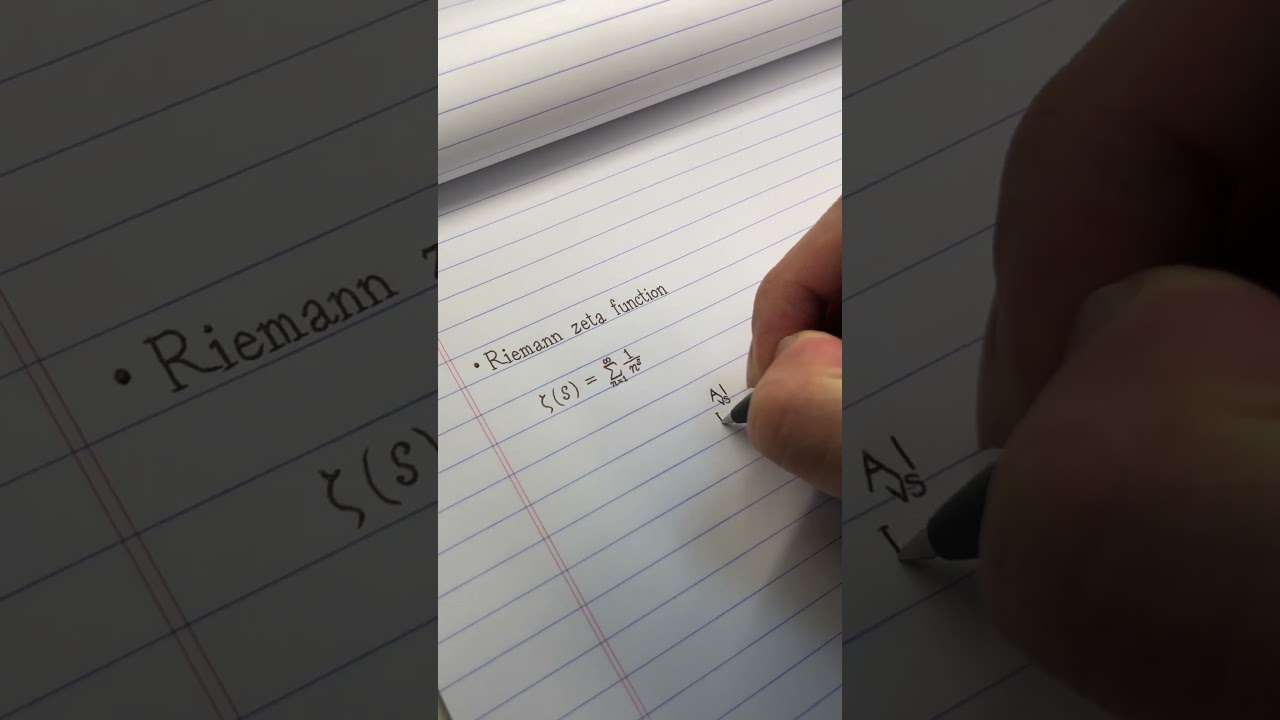 • Riemann zeta function
ζ(s) = ∑_{n=1}^{∞} 1/n^s